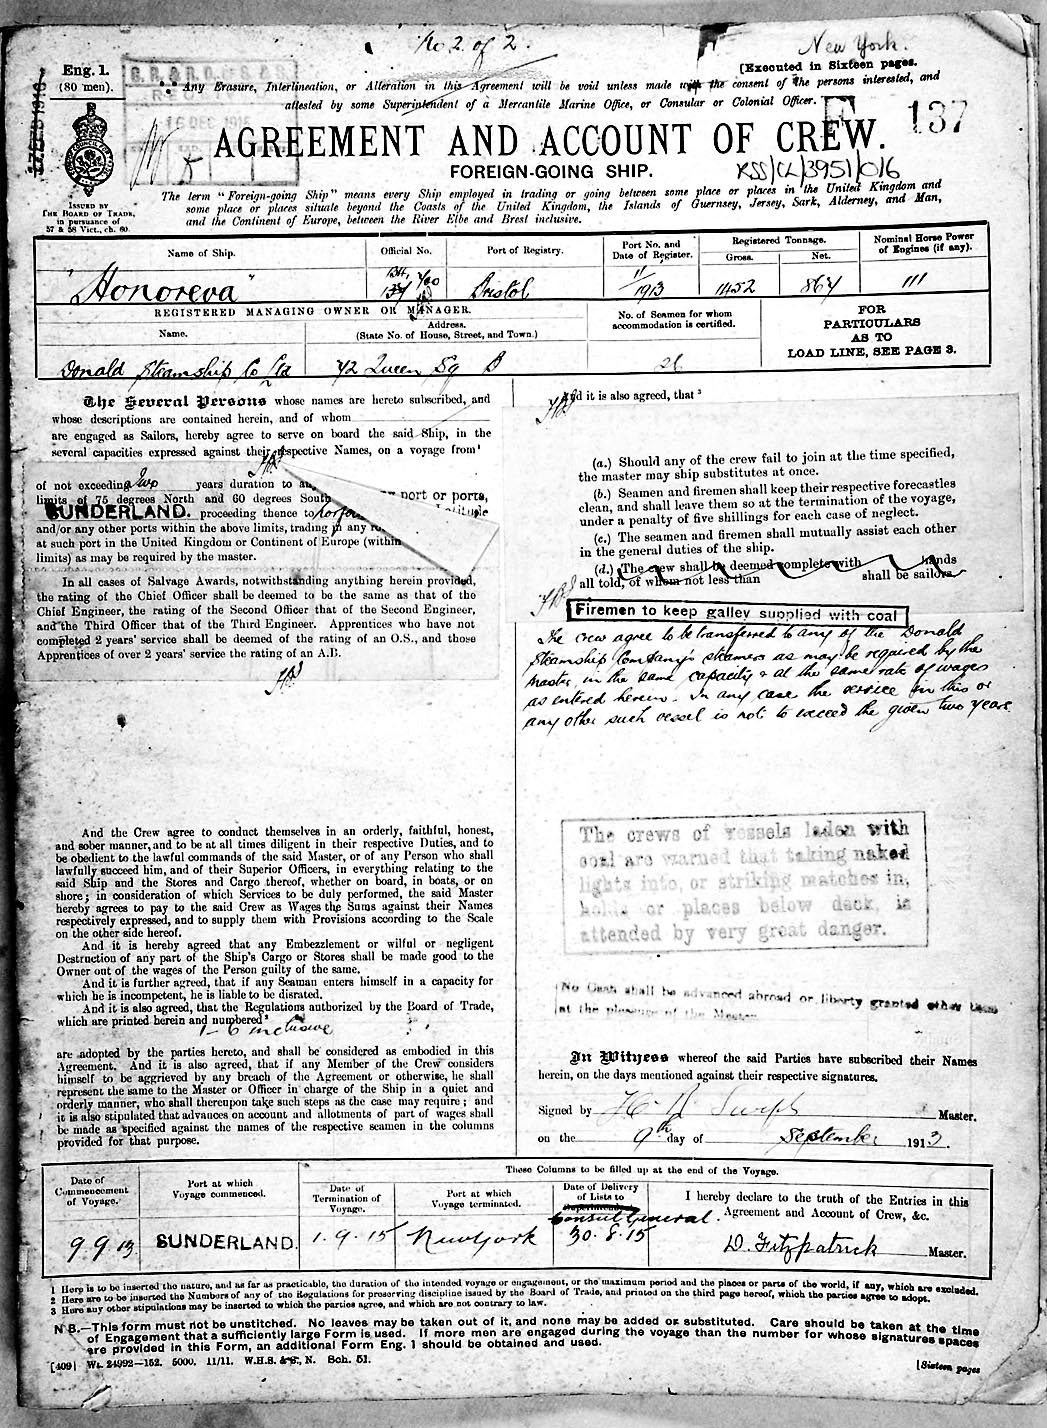 No 2 of 2.
New York.
Eng. 1.
(80 men).
[Executed in Sixteen pages.
Any Erasure, Interlineation, or Alteration in this Agreement will be void unless made with the consent of the persons interested, and
attested by some Superintendent of a Mercantile Marine Office, or Consular or Colonial Officer.
F
137
AGREEMENT AND ACCOUNT OF CREW.
FOREIGN-GOING SHIP.
RSS/CL/3951/016
ISSUED BY
THE BOARD OF TRADE,
in pursuance of
57 & 58 Vict., ch. 60.
The term "Foreign-going Ship" means every Ship employed in trading or going between some place or places in the United Kingdom and
some place or places situate beyond the Coasts of the United Kingdom, the Islands of Guernsey, Jersey, Sark, Alderney, and Man,
and the Continent of Europe, between the River Elbe and Brest inclusive.
Name of Ship.
Official No.
Port of Registry.
Port No. and
Date of Register.
Registered Tonnage.
Gross.
Net.
Nominal Horse Power
of Engines (if any).
"Honoreva"
Bristol
11/1913
1452
864
111
REGISTERED MANAGING OWNER OR MANAGER.
Name.
Address.
(State No. of House, Street, and Town.)
No. of Seamen for whom
accommodation is certified.
FOR
PARTICULARS
AS TO
LOAD LINE, SEE PAGE 3.
Donald Steamship Co Ltd
42 Queen Sq B
The Several Persons whose names are hereto subscribed, and
whose descriptions are contained herein, and of whom
are engaged as Sailors, hereby agree to serve on board the said Ship, in the
several capacities expressed against their respective Names, on a voyage from¹
of not exceeding two years duration to any port or ports,
limits of 75 degrees North and 60 degrees South Latitude
SUNDERLAND. proceeding thence to
and/or any other ports within the above limits, trading in any
at such port in the United Kingdom or Continent of Europe (within
limits) as may be required by the master.
In all cases of Salvage Awards, notwithstanding anything herein provided,
the rating of the Chief Officer shall be deemed to be the same as that of the
Chief Engineer, the rating of the Second Officer that of the Second Engineer,
and the Third Officer that of the Third Engineer. Apprentices who have not
completed 2 years' service shall be deemed of the rating of an O.S., and those
Apprentices of over 2 years' service the rating of an A.B.
And the Crew agree to conduct themselves in an orderly, faithful, honest,
and sober manner, and to be at all times diligent in their respective Duties, and to
be obedient to the lawful commands of the said Master, or of any Person who shall
lawfully succeed him, and of their Superior Officers, in everything relating to the
said Ship and the Stores and Cargo thereof, whether on board, in boats, or on
shore; in consideration of which Services to be duly performed, the said Master
hereby agrees to pay to the said Crew as Wages the Sums against their Names
respectively expressed, and to supply them with Provisions according to the Scale
on the other side hereof.
And it is hereby agreed that any Embezzlement or wilful or negligent
Destruction of any part of the Ship's Cargo or Stores shall be made good to the
Owner out of the wages of the Person guilty of the same.
And it is further agreed, that if any Seaman enters himself in a capacity for
which he is incompetent, he is liable to be disrated.
And it is also agreed, that the Regulations authorized by the Board of Trade,
which are printed herein and numbered²
1-6 inclusive
are adopted by the parties hereto, and shall be considered as embodied in this
Agreement. And it is also agreed, that if any Member of the Crew considers
himself to be aggrieved by any breach of the Agreement or otherwise, he shall
represent the same to the Master or Officer in charge of the Ship in a quiet and
orderly manner, who shall thereupon take such steps as the case may require; and
it is also stipulated that advances on account and allotments of part of wages shall
be made as specified against the names of the respective seamen in the columns
provided for that purpose.
And it is also agreed, that ³
(a.) Should any of the crew fail to join at the time specified,
the master may ship substitutes at once.
(b.) Seamen and firemen shall keep their respective forecastles
clean, and shall leave them so at the termination of the voyage,
under a penalty of five shillings for each case of neglect.
(c.) The seamen and firemen shall mutually assist each other
in the general duties of the ship.
(d.) The crew shall be deemed complete with hands
all told, of whom not less than shall be sailors.
Firemen to keep galley supplied with coal
The crew agree to be transferred to any of the Donald
Steamship Company's steamers as may be required by the
Master in the same capacity & at the same rate of wages
as entered herein. In any case the service in this or
any other such vessel is not to exceed the given two years
The crews of vessels laden with
coal are warned that taking naked
lights into, or striking matches in,
holds or places below deck, is
attended by very great danger.
No Cash shall be advanced abroad or liberty granted other than
at the pleasure of the Master.
In Witness whereof the said Parties have subscribed their Names
herein, on the days mentioned against their respective signatures.
Signed by Master.
on the 9th day of September 1913.
These Columns to be filled up at the end of the Voyage.
Date of
Commencement
of Voyage.
Port at which
Voyage commenced.
Date of
Termination of
Voyage.
Port at which
Voyage terminated.
Date of Delivery
of Lists to
Superintendent
Consul General.
I hereby declare to the truth of the Entries in this
Agreement and Account of Crew, &c.
9.9.13
SUNDERLAND.
1.9.15
New York
30.8.15
D. Fitzpatrick Master.
1 Here is to be inserted the nature, and as far as practicable, the duration of the intended voyage or engagement, or the maximum period and the places or parts of the world, if any, which are excluded.
2 Here are to be inserted the Numbers of any of the Regulations for preserving discipline issued by the Board of Trade, and printed on the third page hereof, which the parties agree to adopt.
3 Here any other stipulations may be inserted to which the parties agree, and which are not contrary to law.
N B.—This form must not be unstitched. No leaves may be taken out of it, and none may be added or substituted. Care should be taken at the time
of Engagement that a sufficiently large Form is used. If more men are engaged during the voyage than the number for whose signatures spaces
are provided in this Form, an additional Form Eng. 1 should be obtained and used.
[409] Wt. 24992—152. 5000. 11/11. W.H.B. & S., N. Sch. 51.
[Sixteen pages